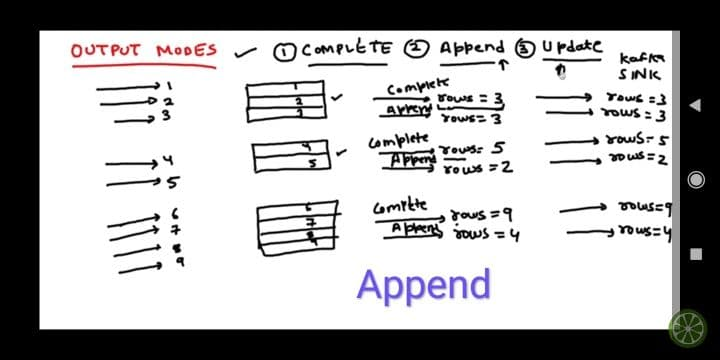 OUTPUT MODES ① COMPLETE ② Append ③ Update
kafka
SINK
1
2
3
1
2
3
Complete
rows = 3
Append
rows = 3
rows = 3
rows = 3
4
5
4
5
Complete
rows = 5
Append
rows = 2
rows = 5
rows = 2
6
7
8
9
6
7
8
9
Complete
rows = 9
Append rows = 4
rows = 9
rows = 4
Append